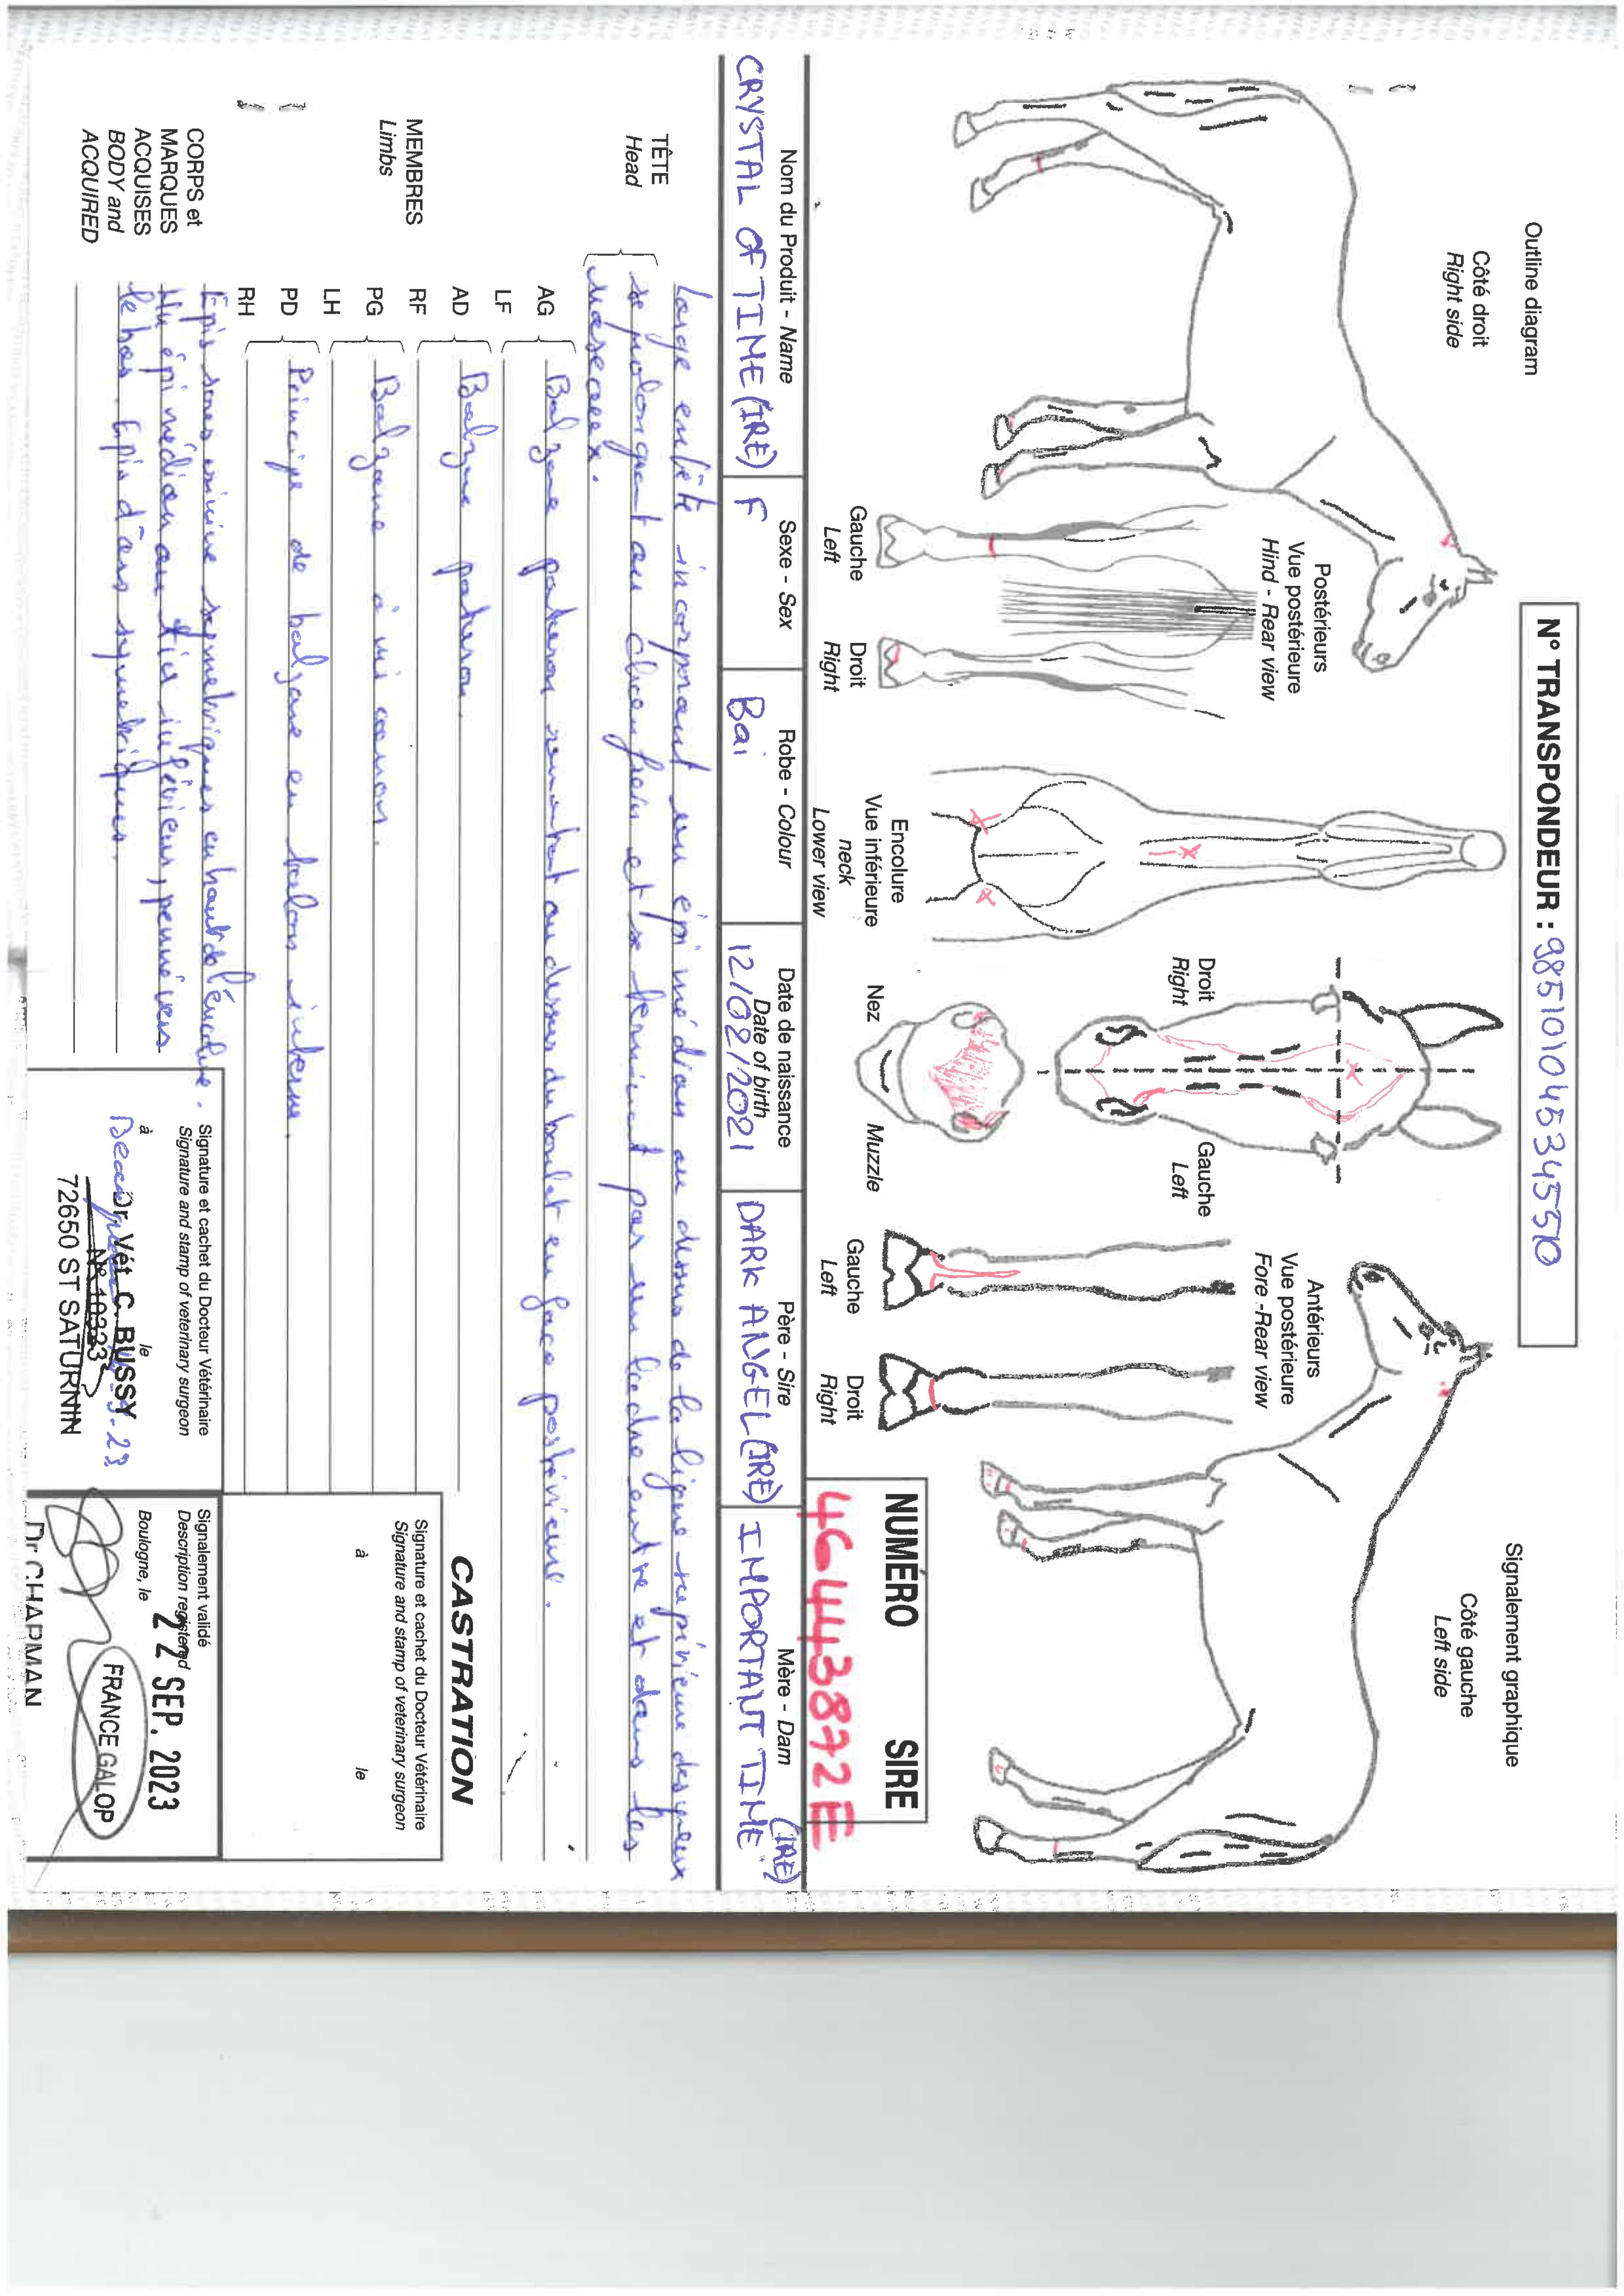 Outline diagram
Signalement graphique
Côté droit
Right side
N° TRANSPONDEUR : 985101045345550
Côté gauche
Left side
Postérieurs
Vue postérieure
Hind - Rear view
Gauche
Left
Droit
Right
Encolure
Vue inférieure
neck
Lower view
Droit
Right
Gauche
Left
Nez
Muzzle
Antérieurs
Vue postérieure
Fore -Rear view
Gauche
Left
Droit
Right
NUMÉRO SIRE
46443872E
Nom du Produit - Name
Sexe - Sex
Robe - Colour
Date de naissance
Date of birth
Père - Sire
Mère - Dam
CRYSTAL OF TIME (IRE)
F
Bai
12/02/2021
DARK ANGEL (IRE)
IMPORTANT TIME (IRE)
TÊTE
Head
Large en tête incorporant un épi médian au dessus de la ligne supérieure des yeux
se prolongeant au chanfrein et se terminant par un ladre entre et dans les
naseaux.
MEMBRES
Limbs
AG
LF
Balzane paturon remontant au dessus du boulet en face postérieure.
AD
RF
Balzane paturon.
PG
LH
Balzane à mi canon.
PD
RH
Principe de balzane en talon interne.
CORPS et
MARQUES
ACQUISES
BODY and
ACQUIRED
Epis sous crinière symétriques en haut de l'encolure.
Un épi médian au tiers inférieur, penné vers
le bas. Epis d'ars symétriques.
CASTRATION
Signature et cachet du Docteur Vétérinaire
Signature and stamp of veterinary surgeon
à le
Signature et cachet du Docteur Vétérinaire
Signature and stamp of veterinary surgeon
à le
Dr Vét C. BUSSY
N° 10323
72650 ST SATURNIN
Signalement validé
Description registered
Boulogne, le
22 SEP. 2023
FRANCE GALOP
Dr CHAPMAN